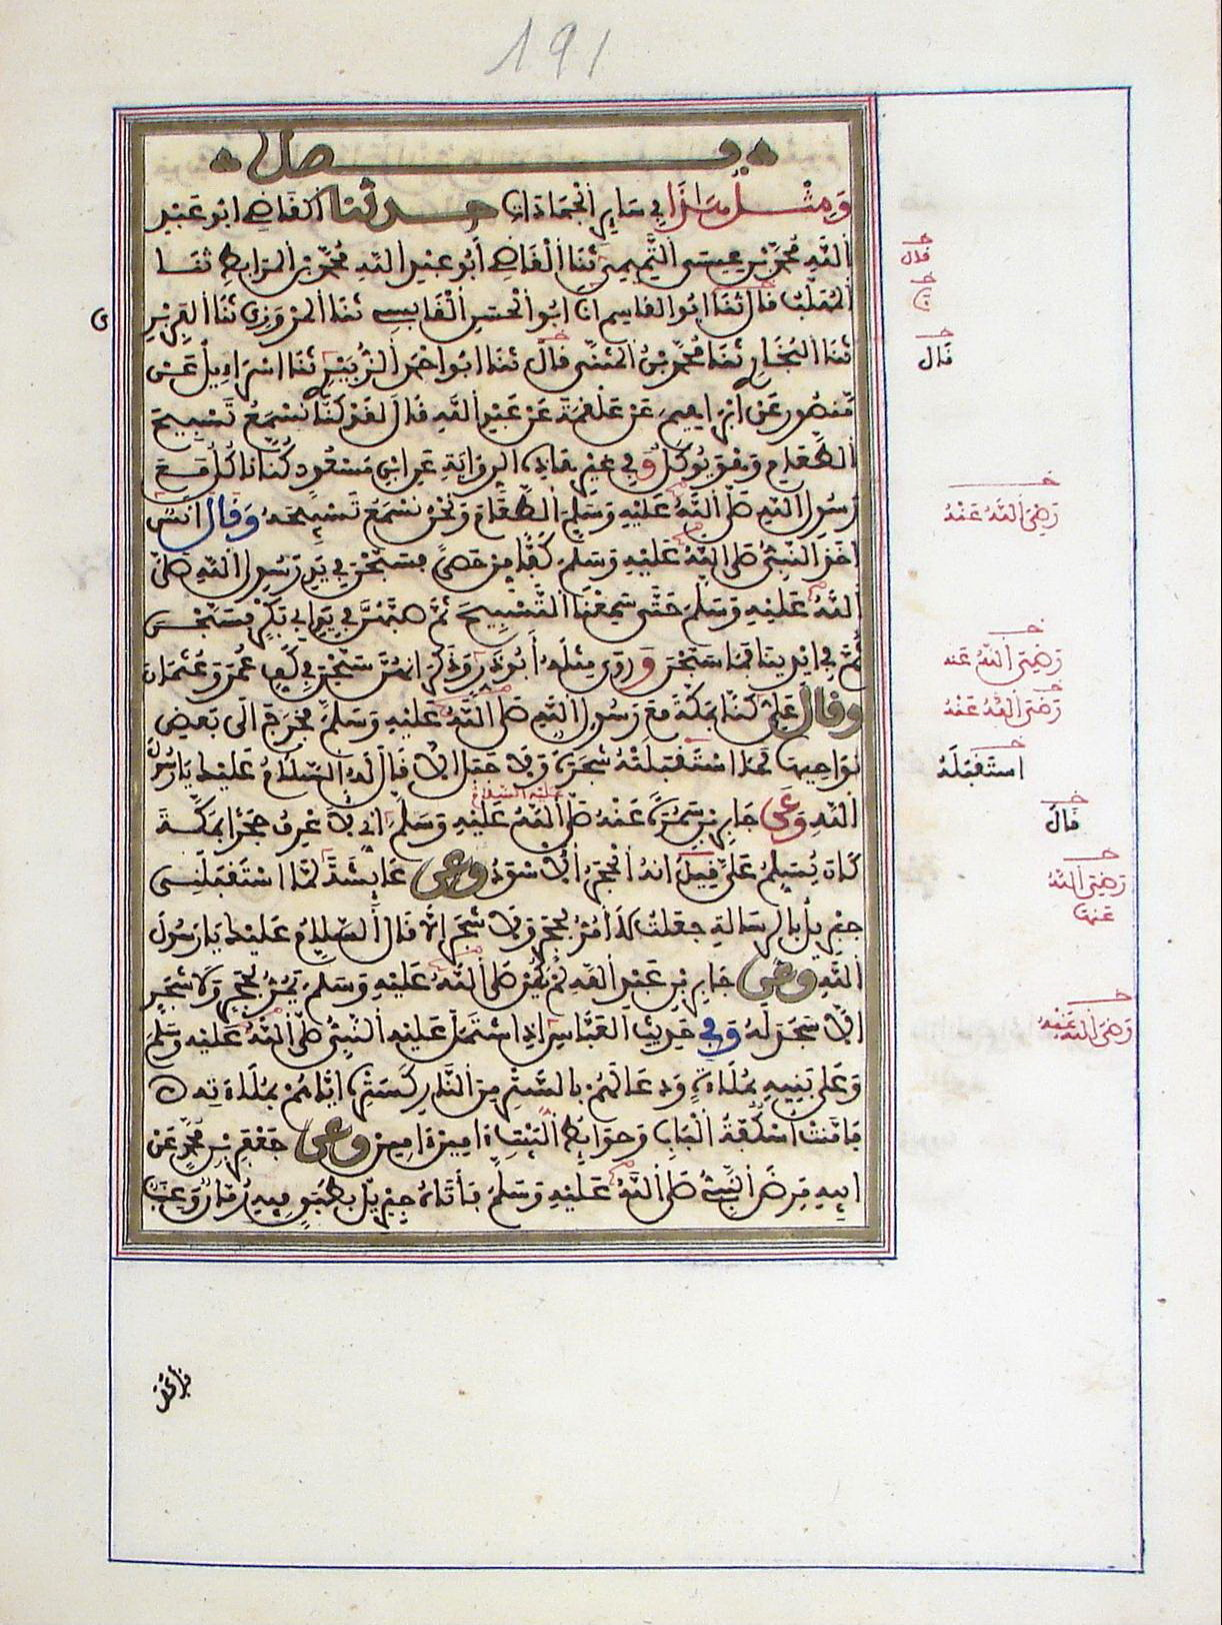 191
فصل
ومثل هذا في ساير الجمادات حدثنا القاضي ابو عبد
الله محمد بن عيسى التميمي ثنا القاضي أبو عبد الله محمد بن المرابط ثنا
المهلب قال ثنا ابو القاسم انا ابو الحسن القابسي ثنا المروزي ثنا الفربري
ثنا البخاري ثنا محمد بن المثنى قال ثنا ابو احمد الزبيري ثنا اسراءيل عن
منصور عن ابراهيم عن علقمة عن عبد الله قال لقد كنا نسمع تسبيح
الطعام وهو يوكل وفي غير هاذه الرواية عن ابن مسعود كنا ناكل مع
رسول الله صلى الله عليه وسلم الطعام ونحن نسمع تسبيحه وقال انس
اخذ النبي صلى الله عليه وسلم كفا من حصى فسبحن في يد رسول الله صلى
الله عليه وسلم حتى سمعنا التسبيح ثم صبهن في يد ابي بكر فسبحن
ثم في ايدينا فما سبحن وروى مثله ابو ذر وذكر انهن سبحن في كف عمر وعثمان
وقال علي كنا بمكة مع رسول الله صلى الله عليه وسلم فخرج الى بعض
نواحيها فما استقبلته شجرة ولا جبل الا قال له السلام عليك يارسول
الله وعن جابر بن سمرة عنه صلى الله عليه وسلم اني لا عرف حجرا بمكة
عليه السلام
كان يسلم علي قيل انه الحجر الاسود وعن عايشة لما استقبلني
جبريل بالرسالة جعلت لا امر بحجر ولا شجر الا قال السلام عليك يارسول
الله وعن جابر بن عبد الله لم يكن صلى الله عليه وسلم يمر بحجر ولا شجر
الا سجد له وفي حديث العباس اذ اشتمل عليه النبي صلى الله عليه وسلم
وعلى بنيه بملاءة ودعا لهم بالستر من النار كستره اياهم بملاءته
فامنت اسكفة الباب وحوايط البيت امين امين وعن جعفر بن محمد عن
ابيه مرض النبي صلى الله عليه وسلم فاتاه جبريل بطبق فيه رمان وعنب
قال
قال
رضي الله عنه
رضي الله عنه
رضي الله عنه
استقبله
قال
رضي الله
عنها
رضي الله عنه
ى